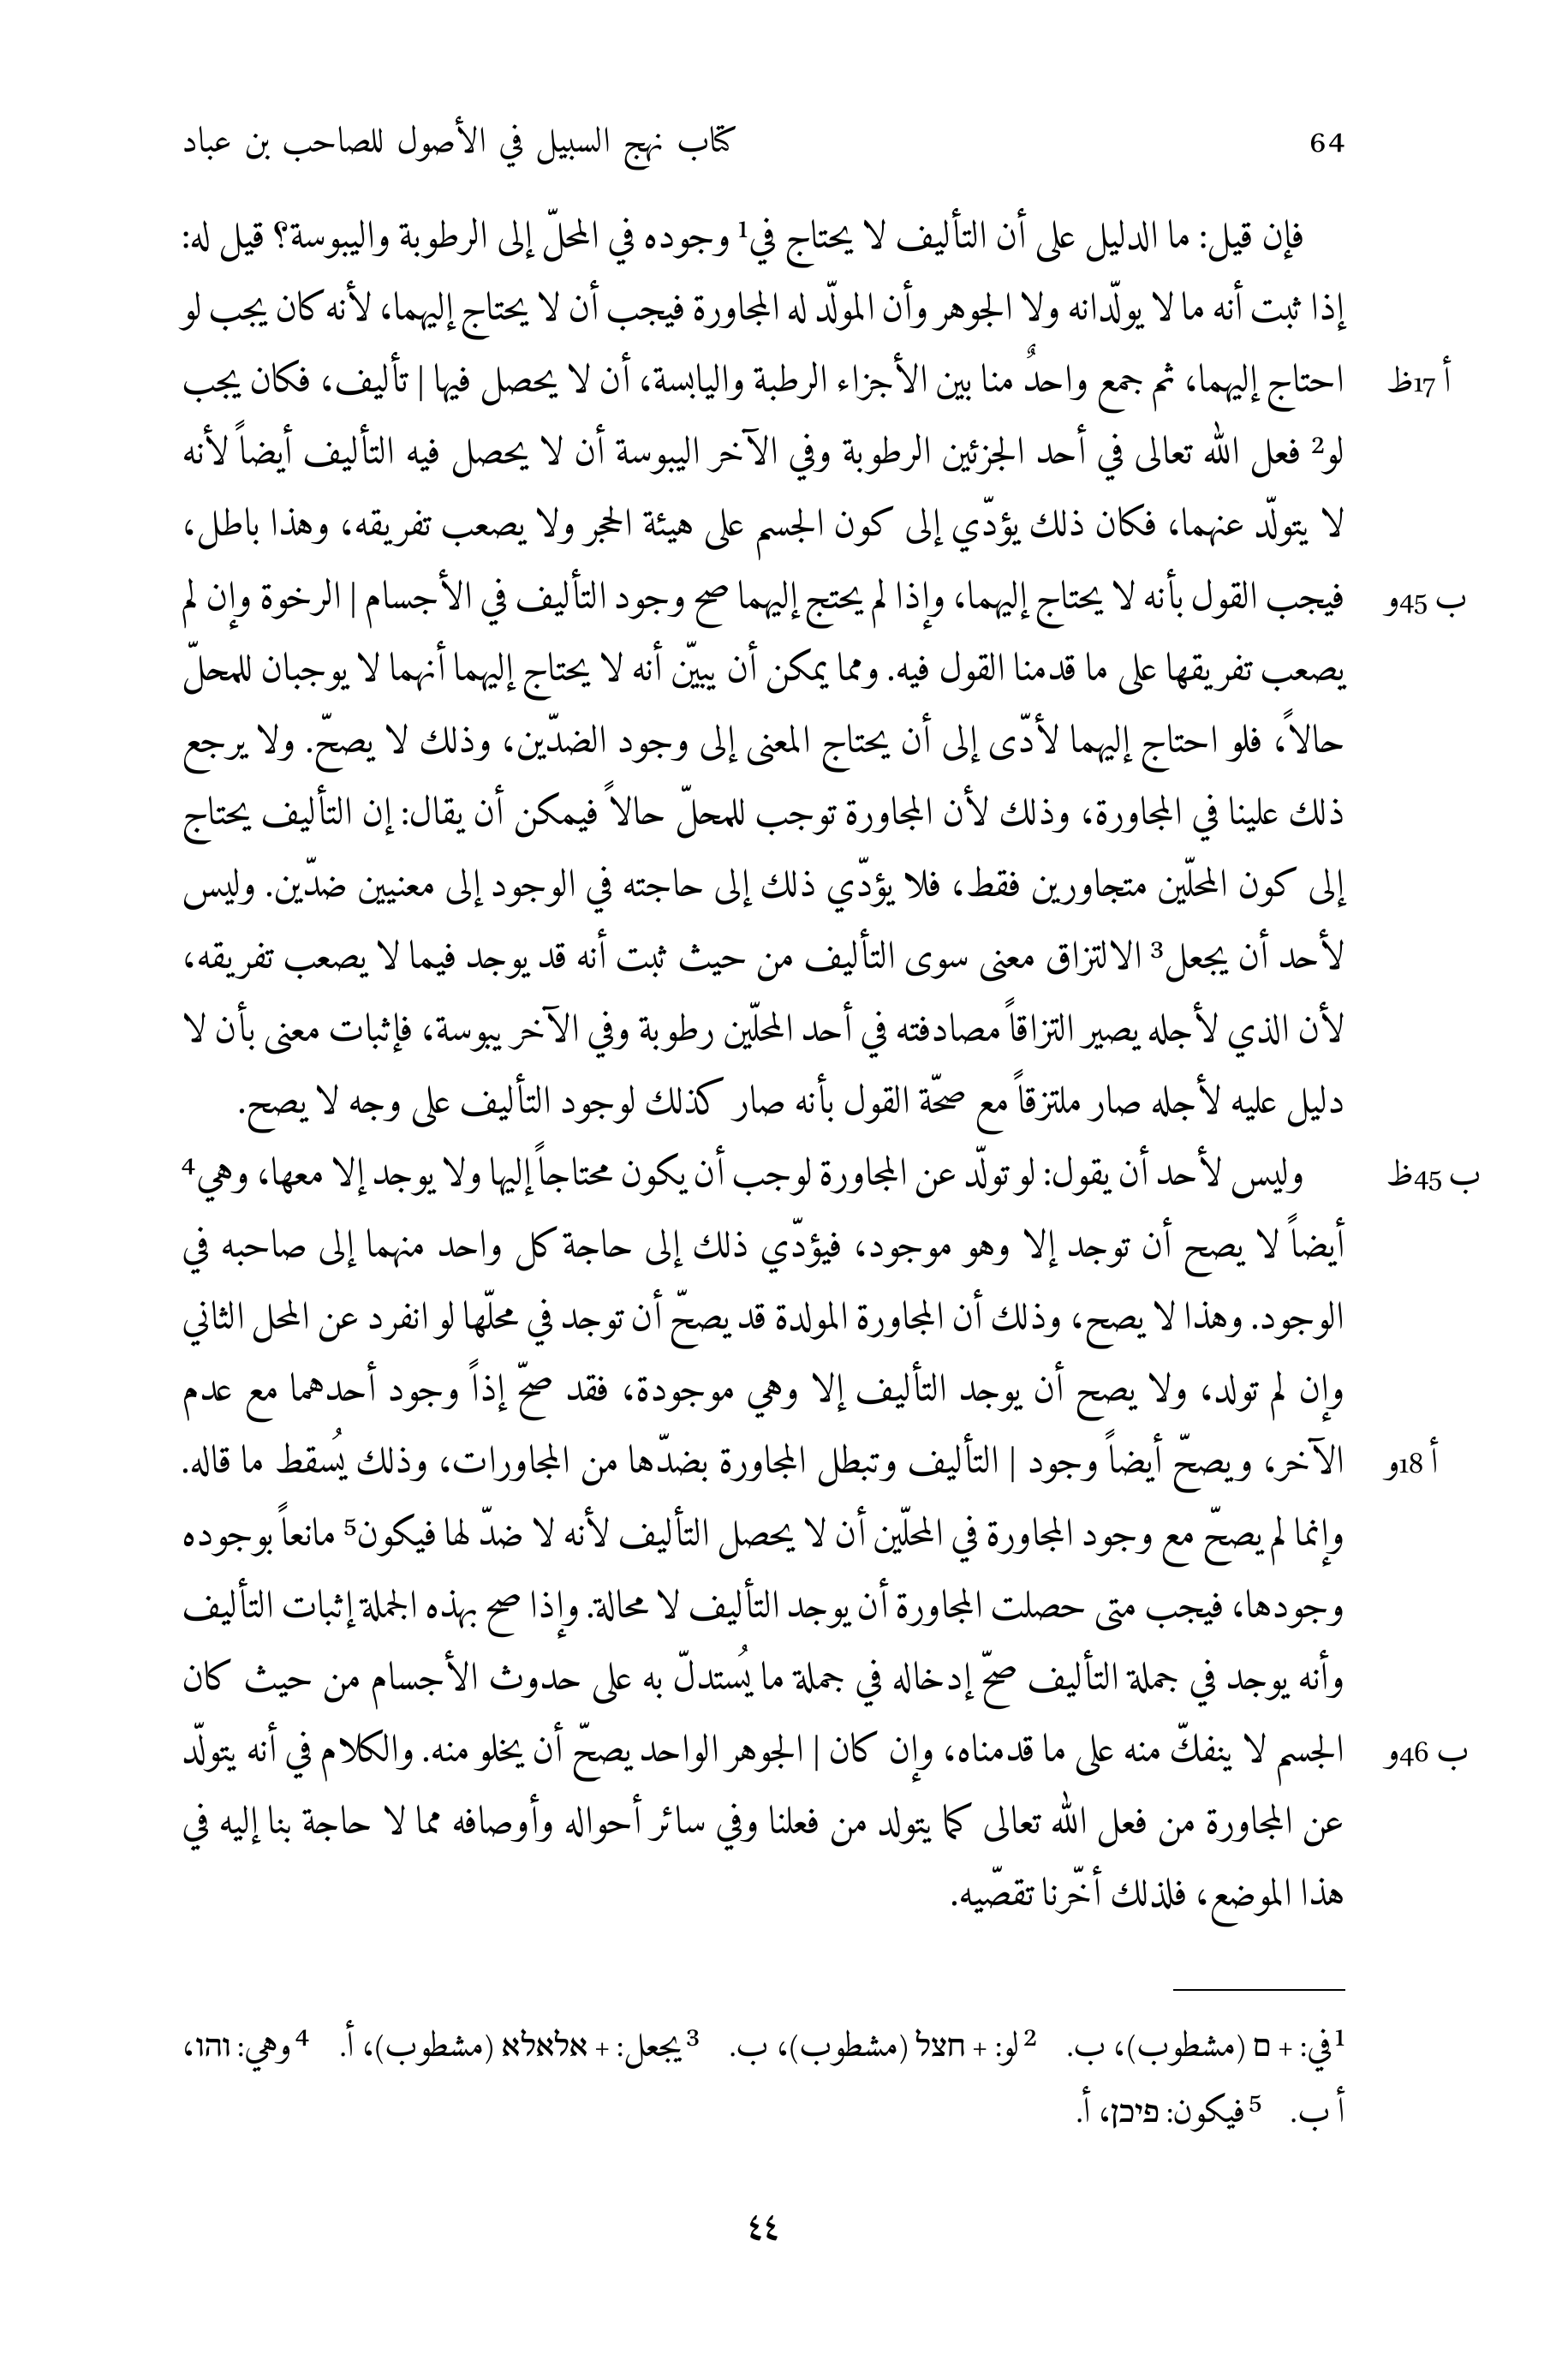 64 كتاب نهج السبيل في الأصول للصاحب بن عباد
فإن قيل: ما الدليل على أن التأليف لا يحتاج في1 وجوده في المحلّ إلى الرطوبة واليبوسة؟ قيل له:
إذا ثبت أنه ما لا يولّدانه ولا الجوهر وأن المولّد له المجاورة فيجب أن لا يحتاج إليهما، لأنه كان يجب لو
أ 17ظ احتاج إليهما، ثم جمع واحدٌ منا بين الأجزاء الرطبة واليابسة، أن لا يحصل فيها | تأليف، فكان يجب
لو2 فعل الله تعالى في أحد الجزئين الرطوبة وفي الآخر اليبوسة أن لا يحصل فيه التأليف أيضاً لأنه
لا يتولّد عنهما، فكان ذلك يؤدّي إلى كون الجسم على هيئة الحجر ولا يصعب تفريقه، وهذا باطل،
ب 45و فيجب القول بأنه لا يحتاج إليهما، وإذا لم يحتج إليهما صح وجود التأليف في الأجسام | الرخوة وإن لم
يصعب تفريقها على ما قدمنا القول فيه. ومما يمكن أن يبيّن أنه لا يحتاج إليهما أنهما لا يوجبان للمحلّ
حالاً، فلو احتاج إليهما لأدّى إلى أن يحتاج المعنى إلى وجود الضدّين، وذلك لا يصحّ. ولا يرجع
ذلك علينا في المجاورة، وذلك لأن المجاورة توجب للمحلّ حالاً فيمكن أن يقال: إن التأليف يحتاج
إلى كون المحلّين متجاورين فقط، فلا يؤدّي ذلك إلى حاجته في الوجود إلى معنيين ضدّين. وليس
لأحد أن يجعل3 الالتزاق معنى سوى التأليف من حيث ثبت أنه قد يوجد فيما لا يصعب تفريقه،
لأن الذي لأجله يصير التزاقاً مصادفته في أحد المحلّين رطوبة وفي الآخر يبوسة، فإثبات معنى بأن لا
دليل عليه لأجله صار ملتزقاً مع صحّة القول بأنه صار كذلك لوجود التأليف على وجه لا يصح.
ب 45ظ وليس لأحد أن يقول: لو تولّد عن المجاورة لوجب أن يكون محتاجاً إليها ولا يوجد إلا معها، وهي4
أيضاً لا يصح أن توجد إلا وهو موجود، فيؤدّي ذلك إلى حاجة كل واحد منهما إلى صاحبه في
الوجود. وهذا لا يصح، وذلك أن المجاورة المولدة قد يصحّ أن توجد في محلّها لو انفرد عن المحل الثاني
وإن لم تولد، ولا يصح أن يوجد التأليف إلا وهي موجودة، فقد صحّ إذاً وجود أحدهما مع عدم
أ 18و الآخر، ويصحّ أيضاً وجود | التأليف وتبطل المجاورة بضدّها من المجاورات، وذلك يُسقط ما قاله.
وإنما لم يصحّ مع وجود المجاورة في المحلّين أن لا يحصل التأليف لأنه لا ضدّ لها فيكون5 مانعاً بوجوده
وجودها، فيجب متى حصلت المجاورة أن يوجد التأليف لا محالة. وإذا صح بهذه الجملة إثبات التأليف
وأنه يوجد في جملة التأليف صحّ إدخاله في جملة ما يُستدلّ به على حدوث الأجسام من حيث كان
ب 46و الجسم لا ينفكّ منه على ما قدمناه، وإن كان | الجوهر الواحد يصحّ أن يخلو منه. والكلام في أنه يتولّد
عن المجاورة من فعل الله تعالى كما يتولد من فعلنا وفي سائر أحواله وأوصافه مما لا حاجة بنا إليه في
هذا الموضع، فلذلك أخّرنا تقصّيه.
1 في: + ם (مشطوب)، ب. 2 لو: + חצל (مشطوب)، ب. 3 يجعل: + אלאלא (مشطوب)، أ. 4 وهي: והו،
أ ب. 5 فيكون: פיכן، أ.
٤٤